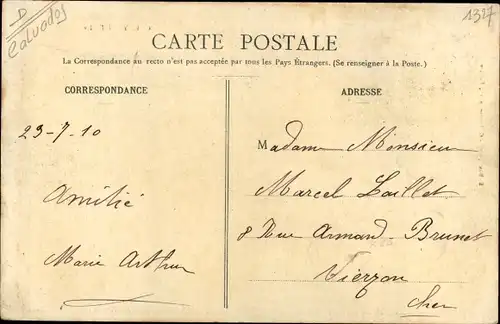 D
Calvados
1327
CARTE POSTALE
La Correspondance au recto n'est pas acceptée par tous les Pays Étrangers. (Se renseigner à la Poste.)
CORRESPONDANCE
ADRESSE
23-7-10
Amitié
Marie Arthur
Madame Monsieur
Marcel Laillet
8 Rue Armand-Brunet
Vierzon
Cher